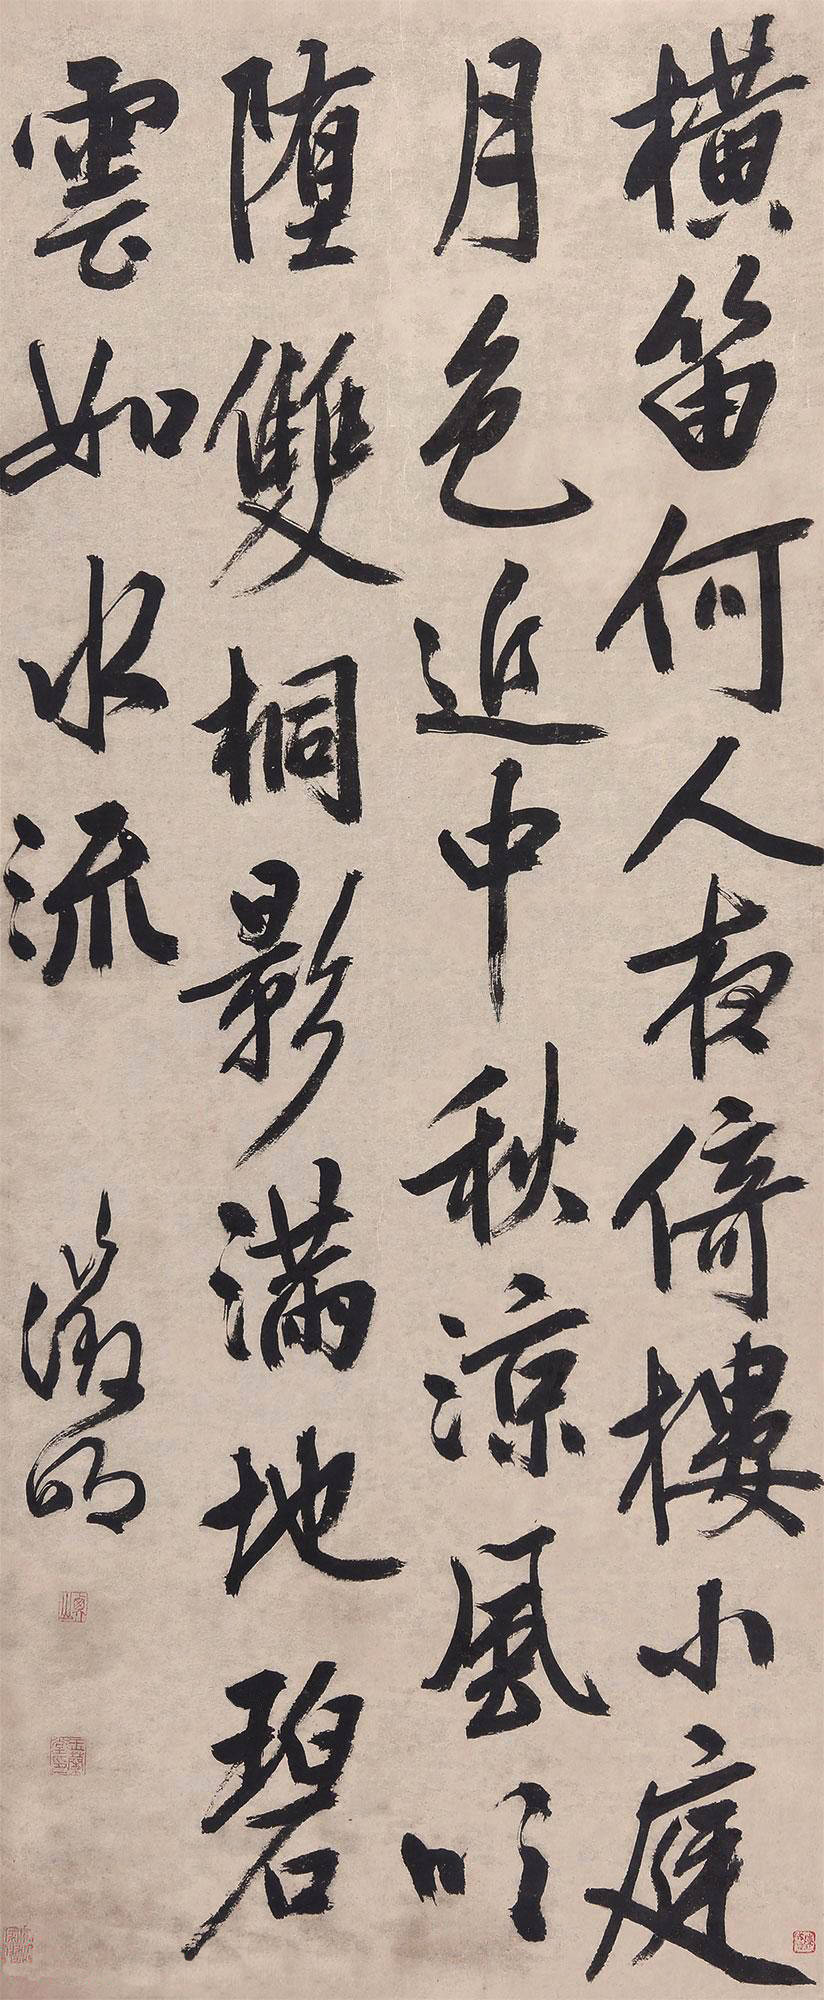 橫笛何人夜倚樓小庭
月色近中秋涼風吹
墮雙桐影滿地碧
雲如水流
徵明